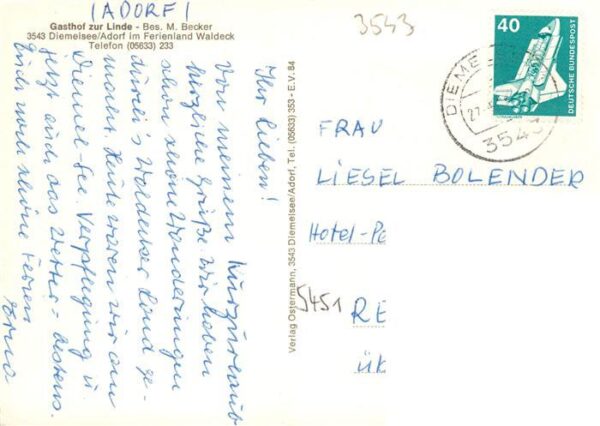 (ADORF)
Gasthof zur Linde - Bes. M. Becker
3543 Diemelsee/Adorf im Ferienland Waldeck
Telefon (05633) 233
Ihr lieben!
Von meinem Kurzurlaub
herzliche Grüße. Wir haben
schon schöne Wanderungen
durch's Waldecker Land ge-
macht. Heute waren wir am
Diemel-See. Verpflegung u.
jetzt auch das Wetter - bestens.
Euch noch schöne Ferien
Erna
Verlag Ostermann, 3543 Diemelsee/Adorf, Tel. (05633) 353 - E.V. 84
3543
40
DEUTSCHE BUNDESPOST
DIEME
27.
3543
FRAU
LIESEL BOLENDER
Hotel-Pe
5451 RE
ÜK